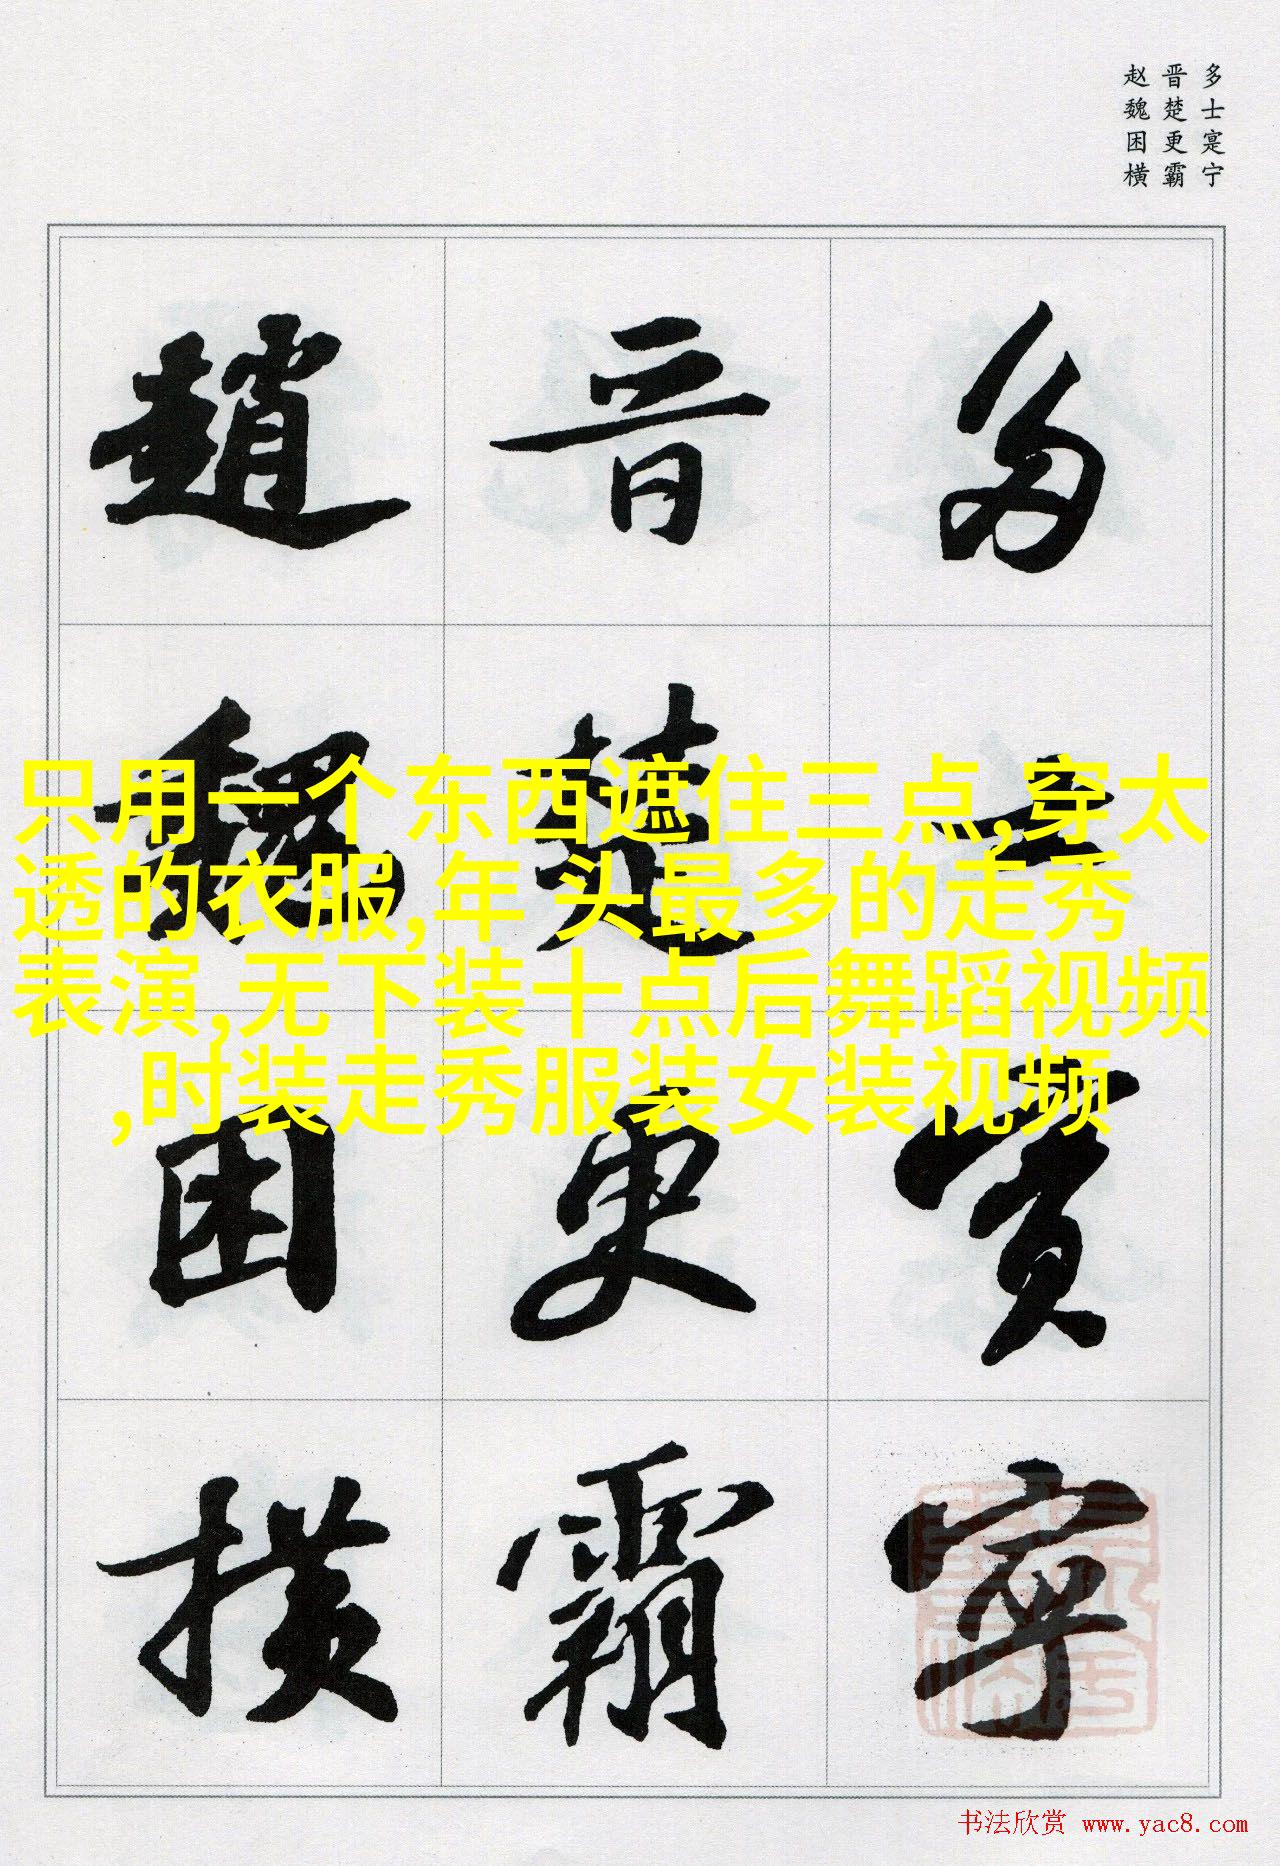 多士寔宁
晋楚更霸
赵魏困横
多士寔寧
晋楚更霸
趙魏困横
只用一个东西遮住三点,穿太
透的衣服,年 头最多的走秀
表演,无下装十点后舞蹈视频
,时装走秀服装女装视频
书法欣赏 www.yac8.com